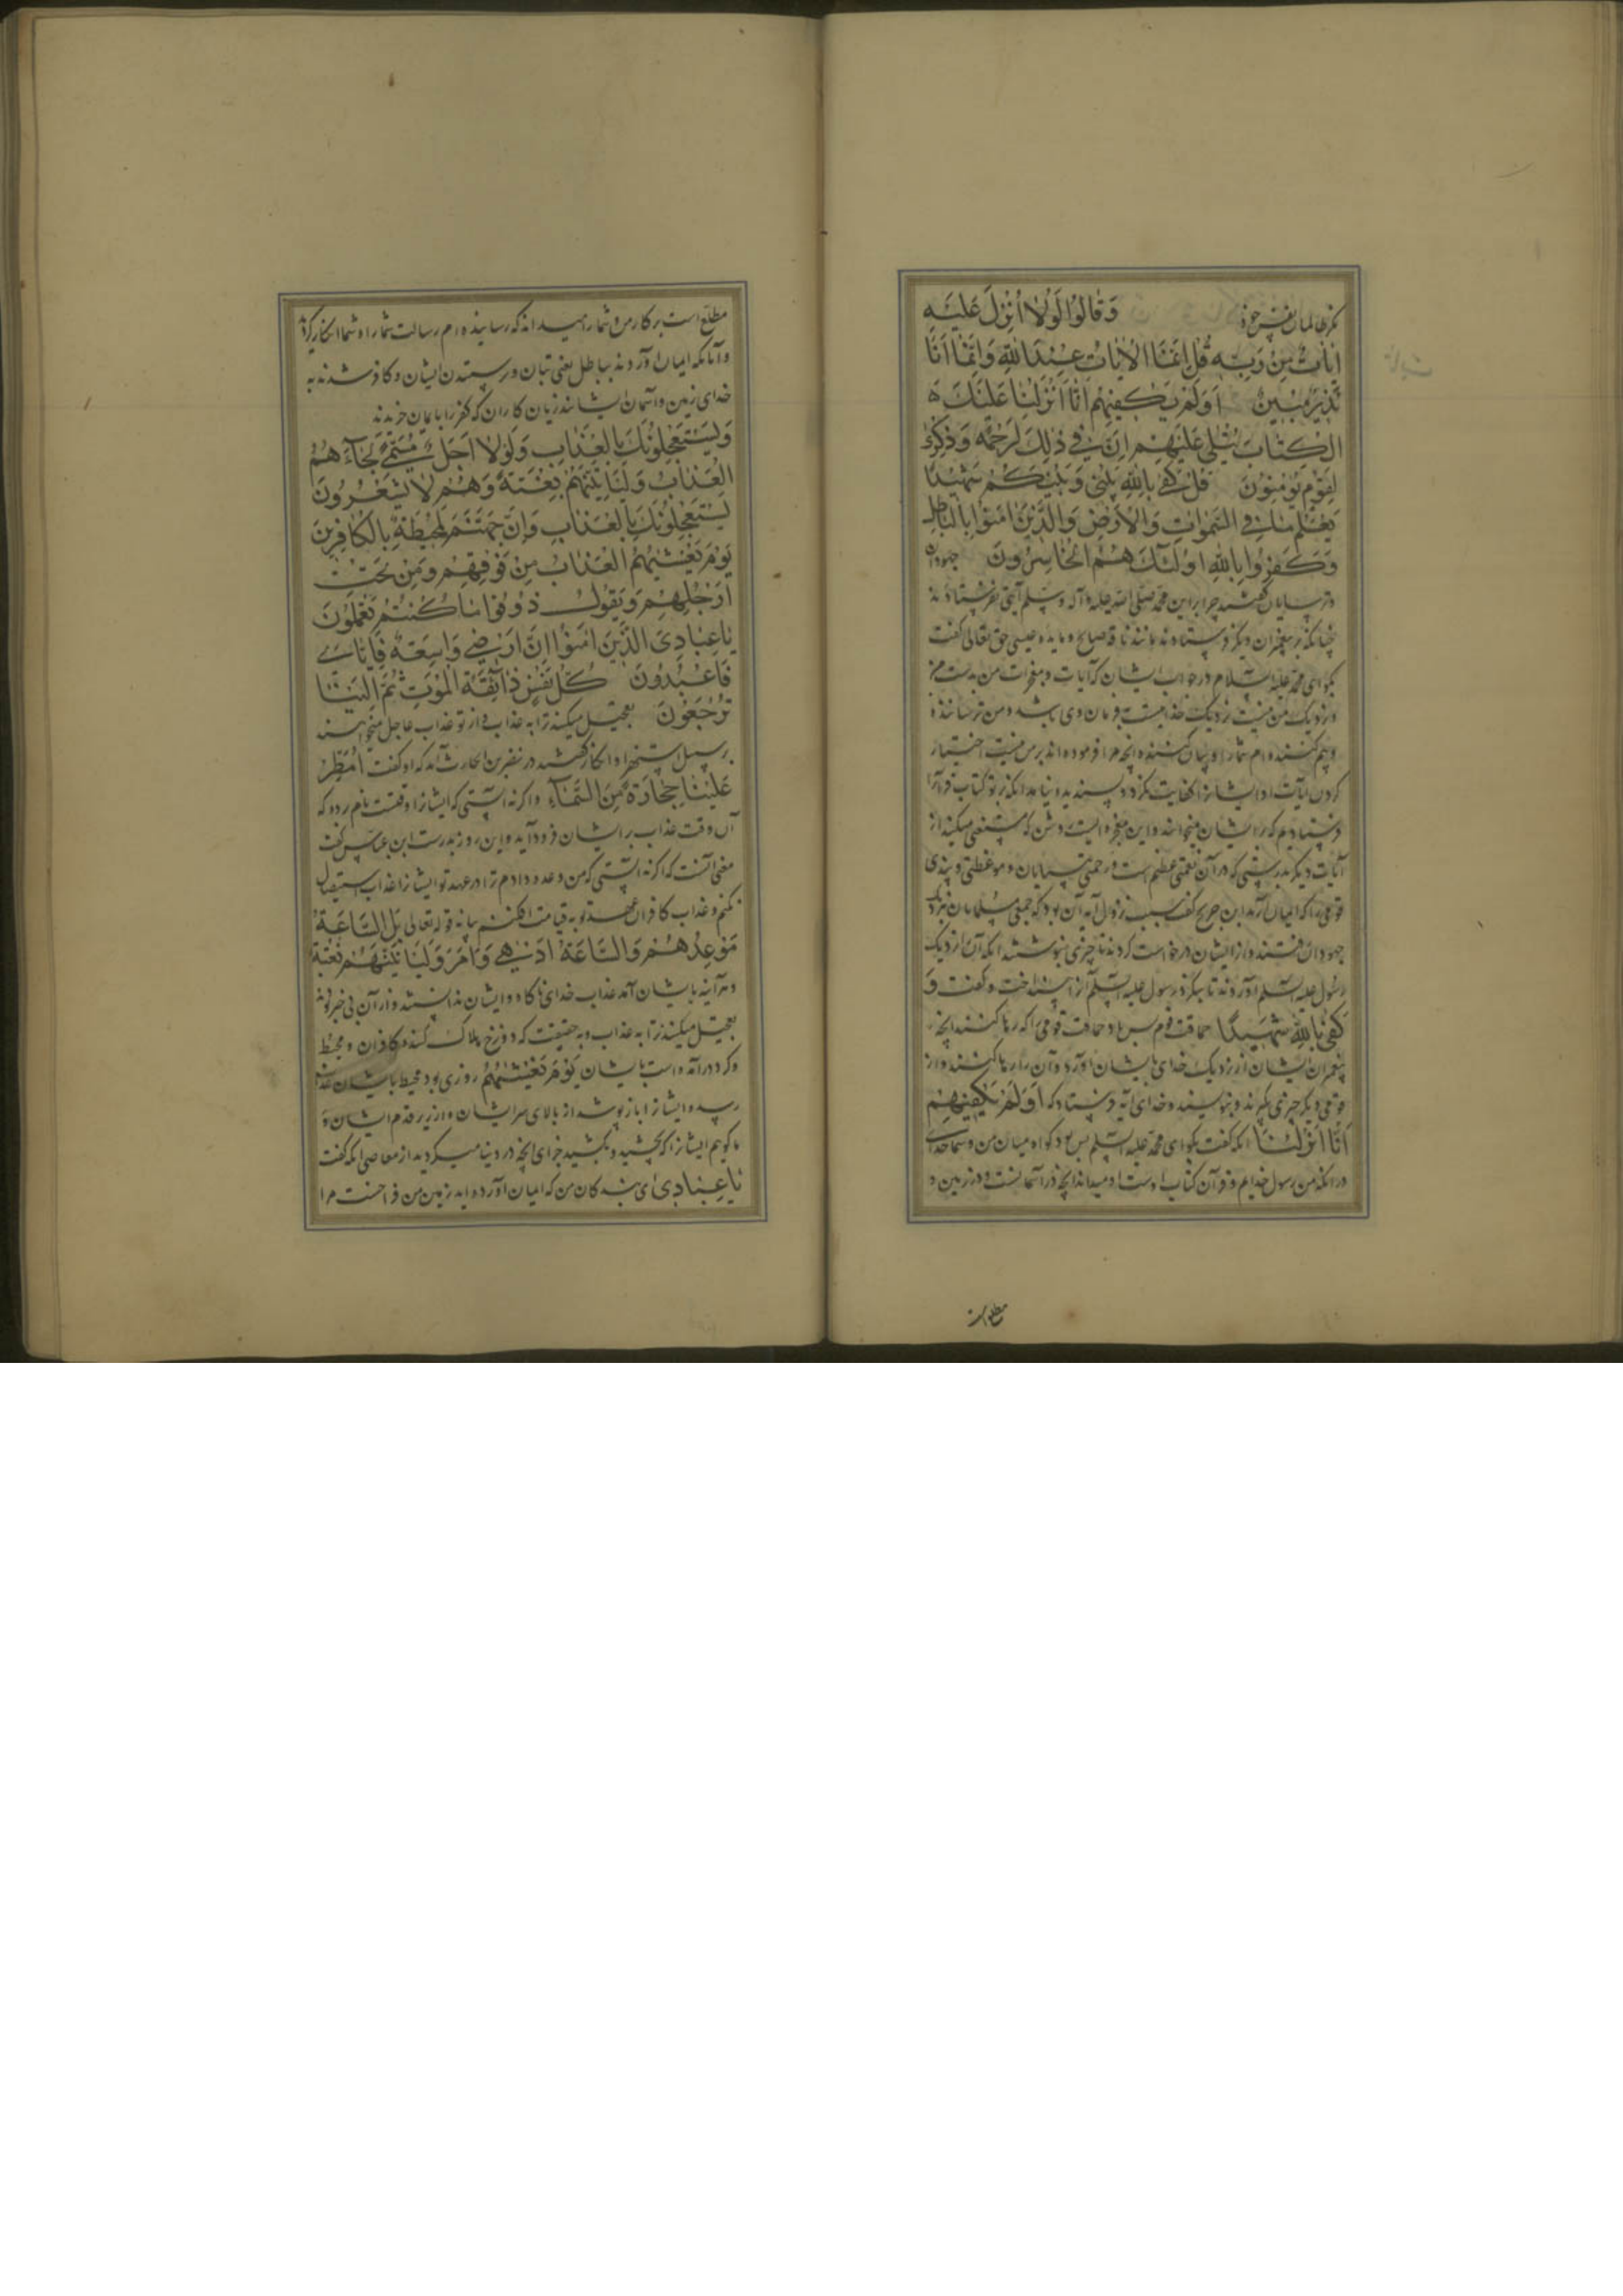 مکر ظالمان بنفس خود وَقَالُوا لَوْلَا اُنْزِلَ عَلَيْهِ
اٰيَاتٌ مِنْ رَبِّهِ قُلْ اِنَّمَا الْاٰيَاتُ عِنْدَ اللّٰهِ وَاِنَّمَا اَنَا
نَذِيرٌ مُبِينٌ اَوَلَمْ يَكْفِهِمْ اَنَّا اَنْزَلْنَا عَلَيْكَ
الْكِتَابَ يُتْلٰى عَلَيْهِمْ اِنَّ فِي ذٰلِكَ لَرَحْمَةً وَذِكْرٰى
لِقَوْمٍ يُؤْمِنُونَ قُلْ كَفٰى بِاللّٰهِ بَيْنِي وَبَيْنَكُمْ شَهِيدًا
يَعْلَمُ مَا فِي السَّمٰوَاتِ وَالْاَرْضِ وَالَّذِينَ اٰمَنُوا بِالْبَاطِلِ
وَكَفَرُوا بِاللّٰهِ اُولٰئِكَ هُمُ الْخَاسِرُونَ جهودان
و ترسایان گفتند چرا بر این محمد صلی الله علیه و آله و سلم آیتی نفرستادند
چنانکه بر پیغمبران دیگر فرستادند مانند ناقه صالح و مایده عیسی حق تعالی گفت
بگو ای محمد علیه السلام در جواب ایشان که آیات و معجزات من بدست من
و نزدیک من نیست نزدیک خداست بفرمان وی باشد و من ترسانند
و بیم کننده ام شما را و بیان کننده انچه مرا فرموده اند بر من نیست اختیار
کردن آیات او ایشانرا کفایت نکردد پسندیده نیامد انکه بر تو کتاب قرآنرا
فرستادیم که بر ایشان میخوانند و این معجزه ایست روشن که مستغنی میکند از
آیات دیکر بدرستی که در آن نعمتی عظیم است و رحمتی بی پایان و موعظتی و پندی
قومی را که ایمان آرند ابن جریح گفت سبب نزول آیه آن بود که جمعی مسلمانان نزدیک
جهودان رفتند و از ایشان درخواست کردند تا چیزی بنوشتند انکه آن نزدیک
رسول علیه السلم آوردند تا بنکرد رسول علیه السلم آنرا بینداخت و گفت وَ
كَفٰى بِاللّٰهِ شَهِيدًا حماقت قوم بس باد حماقت قومی را که رها کنند انچه
پیغمبران ایشان از نزدیک خدای بایشان آورد و آن را رها کنند و از
قومی دیکر چیزی بکیرند و بنویسند و خدای آیه فرستاد که اَوَلَمْ يَكْفِهِمْ
اَنَّا اَنْزَلْنَا انکه گفت بگو ای محمد علیه السلم بس بود گواه میان من و شما خدای
در انکه من رسول خدایم و قرآن کتاب اوست او میداند انچه در آسمانست و در زمین و
مطلع است
مطلع است بر کار من و شما را میداند که رسانیده ام رسالت شما را و شما انکار کردید
و آنانکه ایمان آوردند بباطل یعنی بتان و پرستیدن ایشان و کافر شدند به
خدای زمین و آسمان ایشانند زیان کاران که کفر را بایمان خریدند
وَيَسْتَعْجِلُونَكَ بِالْعَذَابِ وَلَوْلَا اَجَلٌ مُسَمًّى لَجَاءَهُمُ
الْعَذَابُ وَلَيَاْتِيَنَّهُمْ بَغْتَةً وَهُمْ لَا يَشْعُرُونَ
يَسْتَعْجِلُونَكَ بِالْعَذَابِ وَاِنَّ جَهَنَّمَ لَمُحِيطَةٌ بِالْكَافِرِينَ
يَوْمَ يَغْشٰيهُمُ الْعَذَابُ مِنْ فَوْقِهِمْ وَمِنْ تَحْتِ
اَرْجُلِهِمْ وَيَقُولُ ذُوقُوا مَا كُنْتُمْ تَعْمَلُونَ
يَا عِبَادِيَ الَّذِينَ اٰمَنُوا اِنَّ اَرْضِي وَاسِعَةٌ فَاِيَّايَ
فَاعْبُدُونِ كُلُّ نَفْسٍ ذَائِقَةُ الْمَوْتِ ثُمَّ اِلَيْنَا
تُرْجَعُونَ تعجیل میکنند ترا به عذاب و از تو عذاب عاجل میخواهند
بر سبیل استهزا و انکار گفتند در نضر بن الحارث آمد که او گفت اَمْطِرْ
عَلَيْنَا حِجَارَةً مِنَ السَّمَاءِ و اکر نه آنستی که ایشانرا وقتیست نام زد که
آن وقت عذاب بر ایشان فرود آید و این روز بدرست ابن عباس گفت
معنی آنست که اکر نه آنستی که من وعده دادم ترا در عهد تو ایشانرا عذاب استیصال
نکنم و عذاب کافران عهد تو به قیامت افکنم بیانه قوله تعالی بَلِ السَّاعَةُ
مَوْعِدُهُمْ وَالسَّاعَةُ اَدْهٰى وَاَمَرُّ وَلَيَاْتِيَنَّهُمْ بَغْتَةً
و هرآینه بایشان آمد عذاب خدای ناکاه و ایشان ندانستند و از آن بی خبر بوند
تعجیل میکنند ترا به عذاب و به حقیقت که دوزخ هلاک کننده کافران و محیط
و کرد درآمده است بایشان يَوْمَ يَغْشٰيهُمُ روزی بود محیط بایشان عذاب
رسد و ایشانرا باز پوشد از بالای سر ایشان و از زیر قدم ایشان و
ما کوییم ایشانرا که بچشید و بکشید جزای انچه در دنیا میکردید از معاصی انکه گفت
يَا عِبَادِيَ ای بندکان من که ایمان آورده اید زمین من فراخست مرا